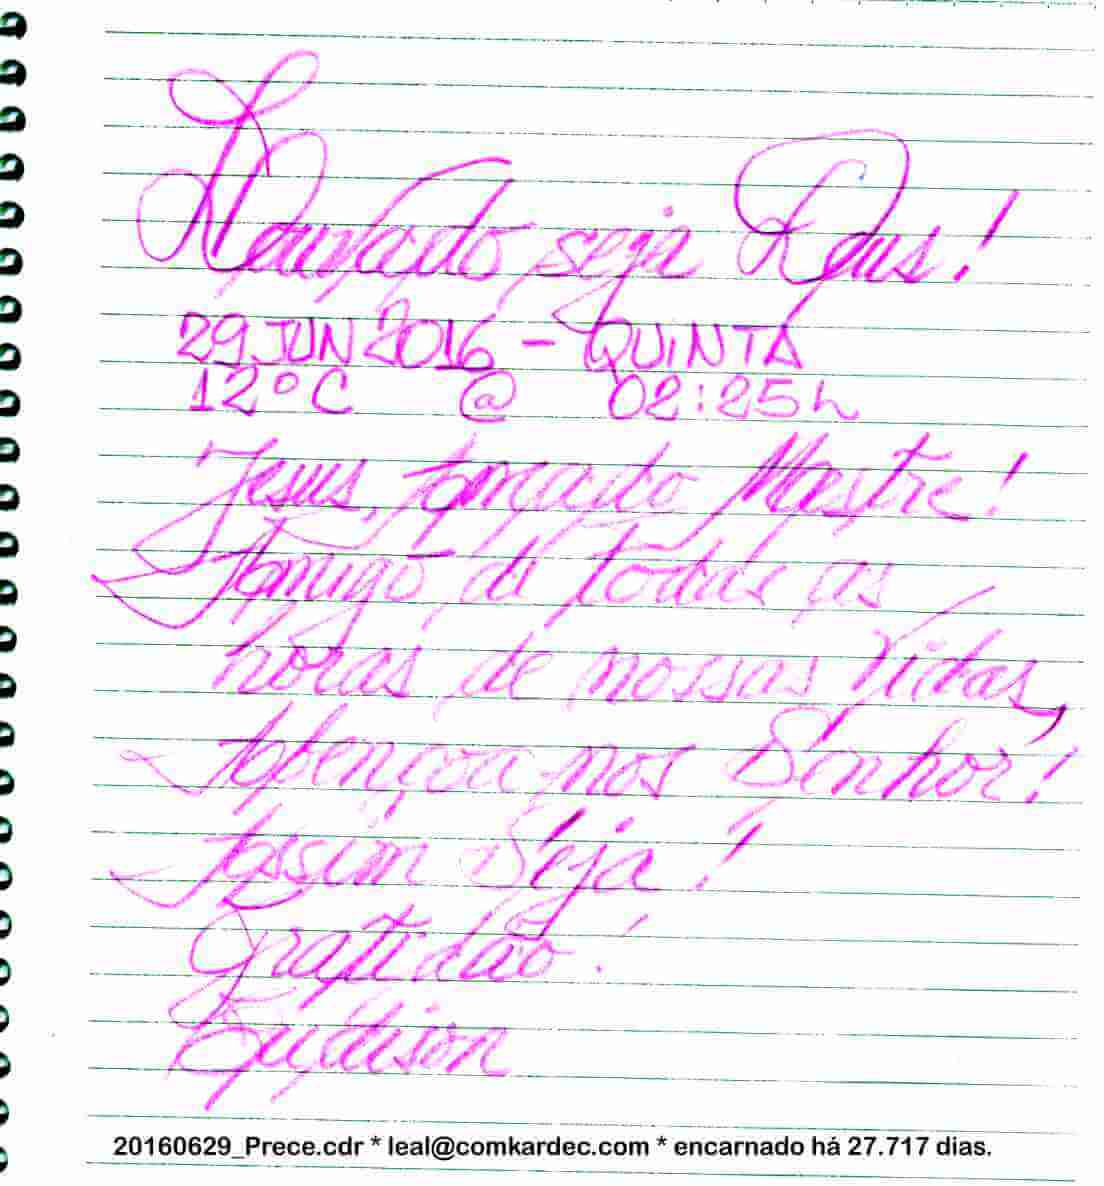 Louvado seja Deus!
29 JUN 2016 - QUINTA
12°C @ 02:25h
Jesus, amado Mestre!
Amigo de todas as
horas de nossas vidas,
Abençoa-nos Senhor!
Assim Seja!
Gratidão!
20160629_Prece.cdr * leal@comkardec.com * encarnado há 27.717 dias.